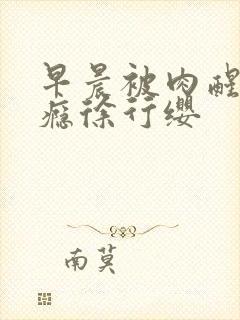 早晨被肉醒
瘾徐行缨
南莫